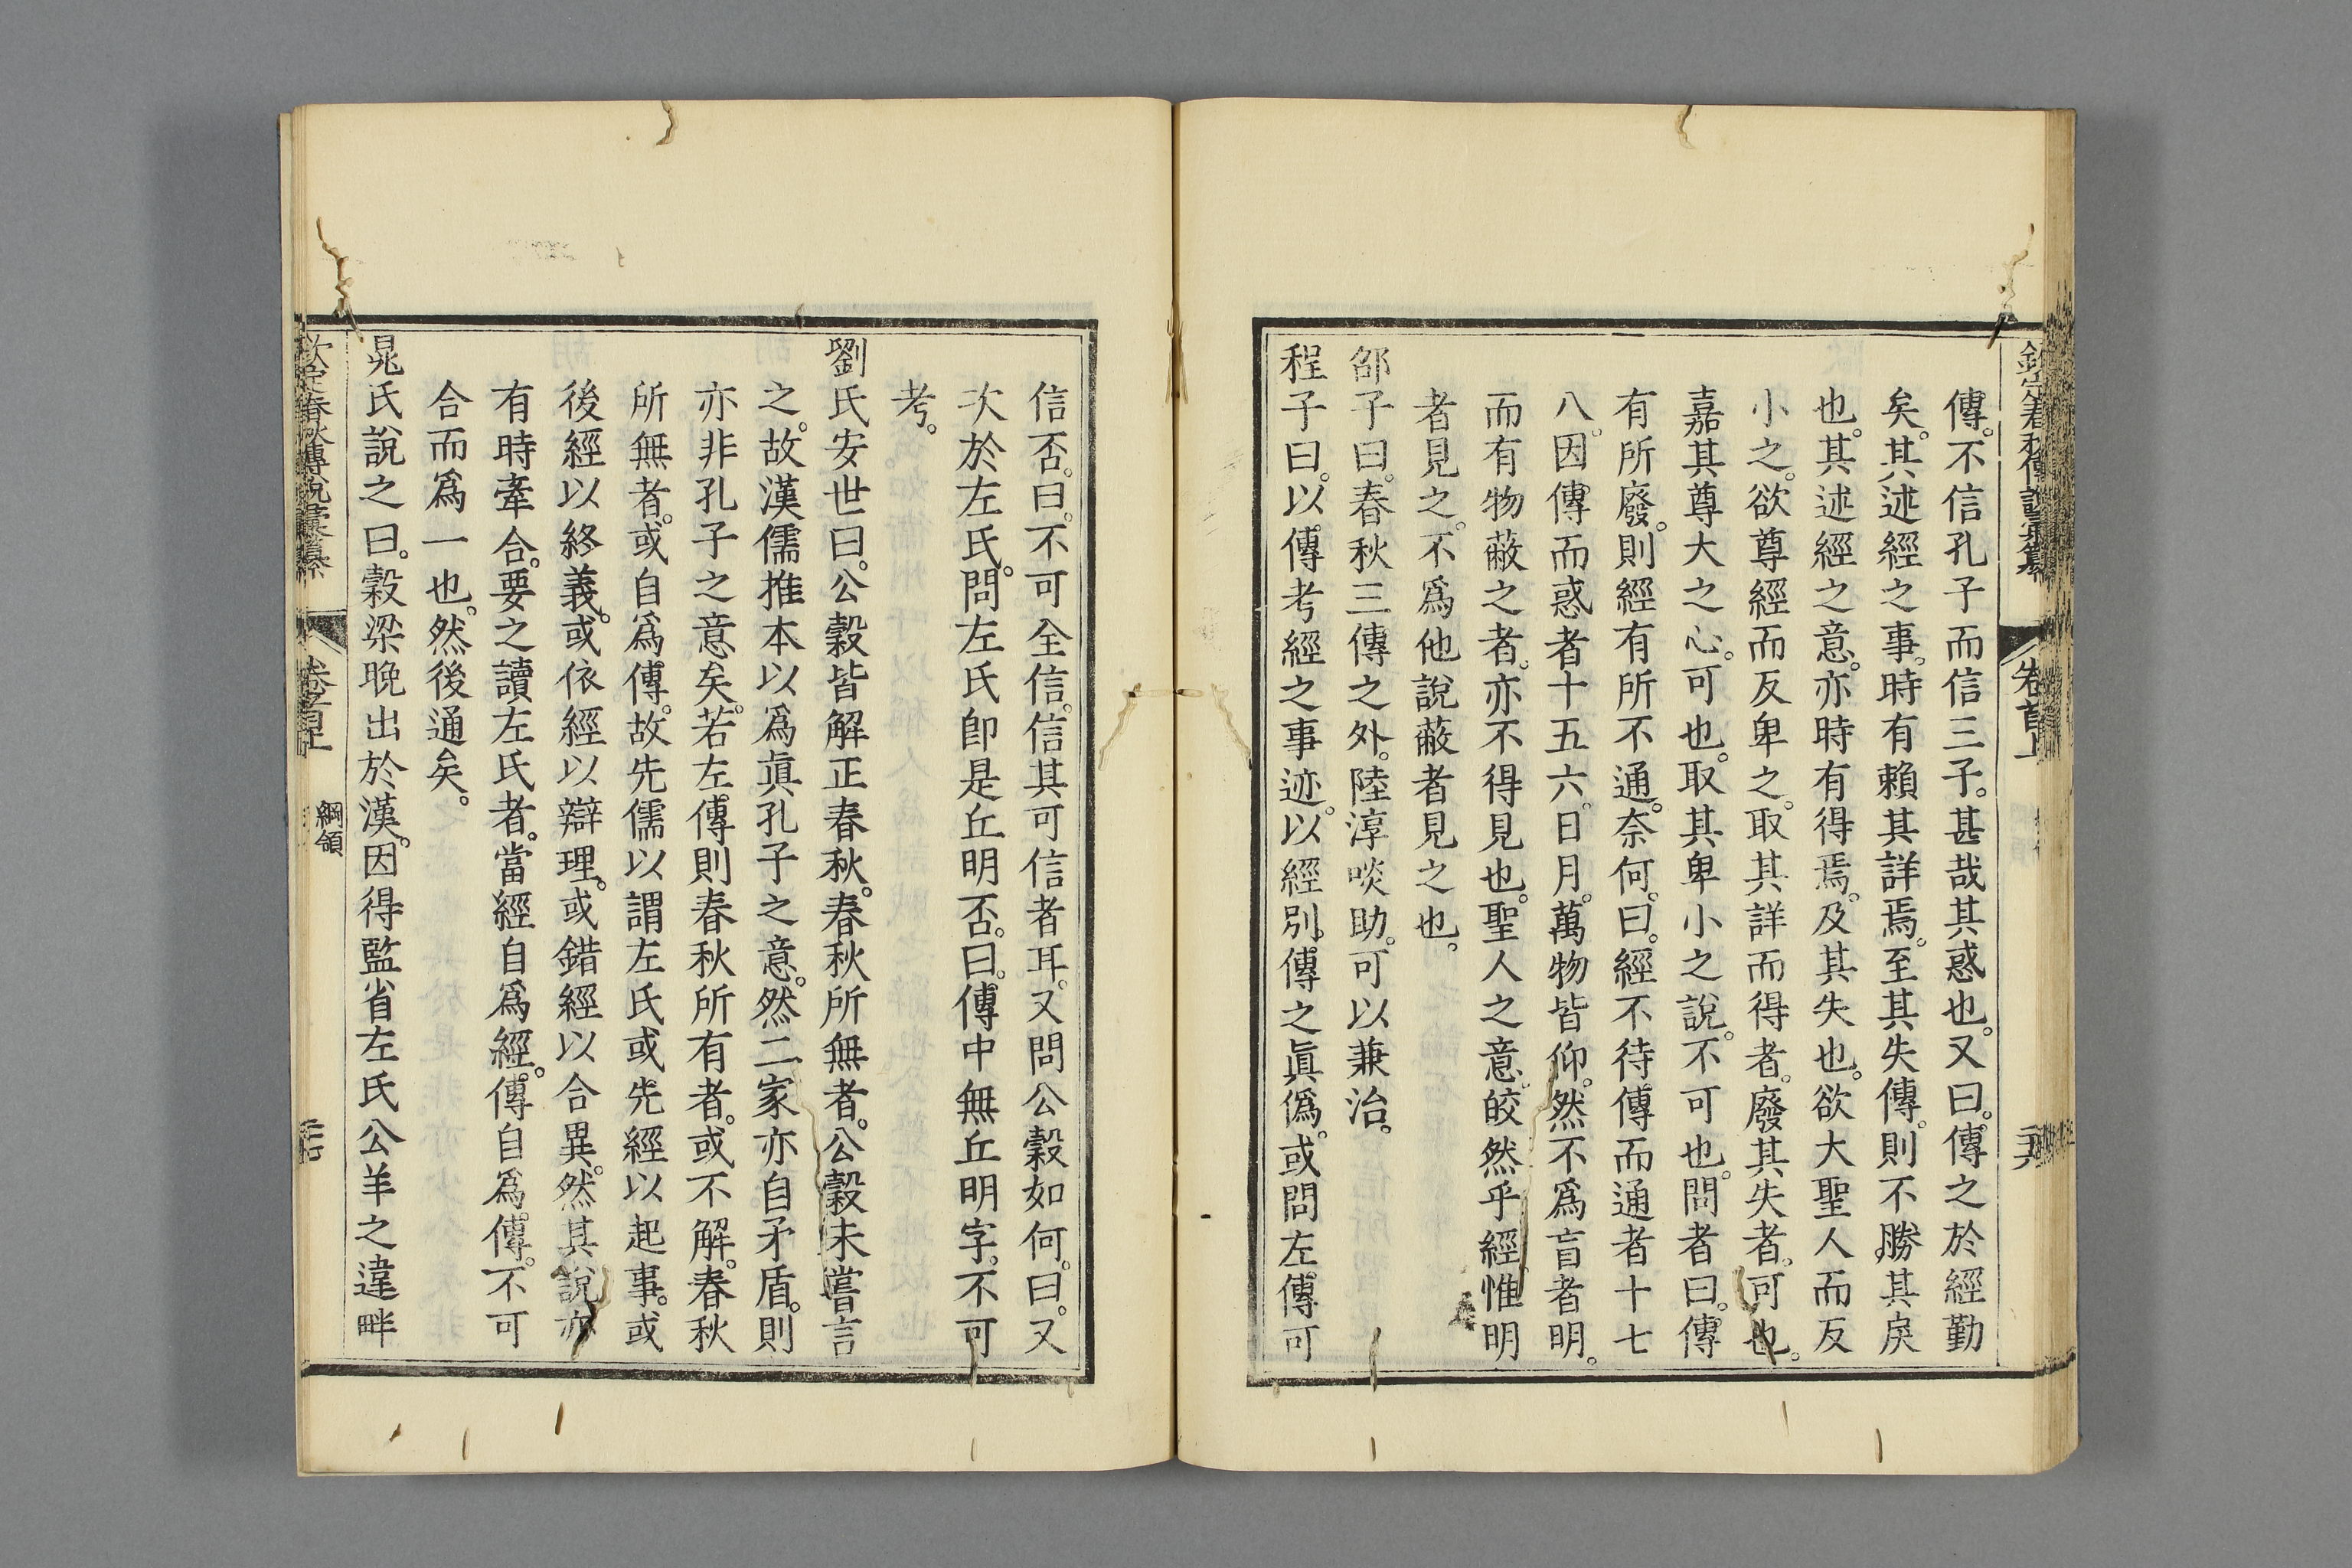 欽定春秋傳說彙纂 卷首上
傳。不信孔子而信三子。甚哉其惑也。又曰。傳之於經勤
矣。其述經之事。時有賴其詳焉。至其失傳。則不勝其戾
也。其述經之意。亦時有得焉。及其失也。欲大聖人而反
小之。欲尊經而反卑之。取其詳而得者。廢其失者。可也。
嘉其尊大之心。可也。取其卑小之說。不可也。問者曰。傳
有所廢。則經有所不通。奈何。曰。經不待傳而通者十七
八。因傳而惑者十五六。日月。萬物皆仰。然不爲盲者明。
而有物蔽之者。亦不得見也。聖人之意。皎然乎經。惟明
者見之。不爲他說蔽者見之也。
邵子曰。春秋三傳之外。陸淳啖助。可以兼治。
程子曰。以傳考經之事迹。以經別傳之眞僞。或問左傳可
信否。曰。不可全信。信其可信者耳。又問公穀如何。曰。又
次於左氏。問左氏卽是丘明否。曰。傳中無丘明字。不可
考。
劉氏安世曰。公穀皆解正春秋。春秋所無者。公穀未嘗言
之。故漢儒推本以爲眞孔子之意。然二家亦自矛盾。則
亦非孔子之意矣。若左傳則春秋所有者。或不解。春秋
所無者。或自爲傳。故先儒以謂左氏或先經以起事。或
後經以終義。或依經以辯理。或錯經以合異。然其說亦
有時牽合。要之讀左氏者。當經自爲經。傳自爲傳。不可
合而爲一也。然後通矣。
晁氏說之曰。穀梁晚出於漢。因得監省左氏公羊之違畔
欽定春秋傳說彙纂 卷首上 綱領